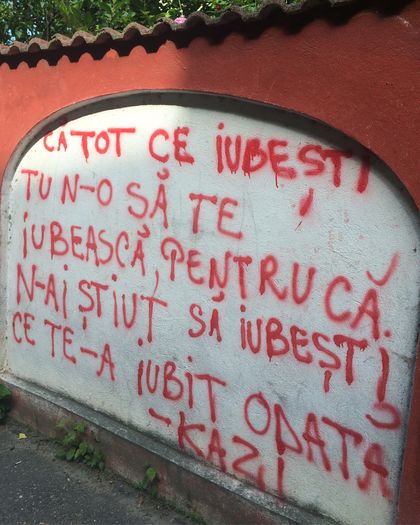 CĂ TOT CE IUBEȘTI
TU N-O SĂ TE
IUBEASCĂ, PENTRU CĂ
N-AI ȘTIUT SĂ IUBEȘTI
CE TE-A IUBIT ODATĂ
-KAZI